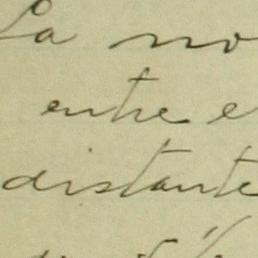 La no
entre e
distante